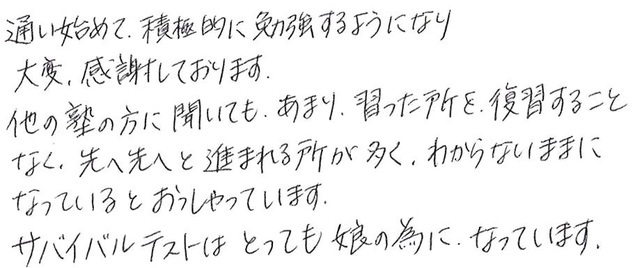 通い始めて、積極的に勉強するようになり
大変、感謝しております。
他の塾の方に聞いても、あまり、習った所を、復習すること
なく、先へ先へと進まれる所が多く、わからないままに
なっているとおっしゃっています。
サバイバルテストはとっても娘の為に、なっています。